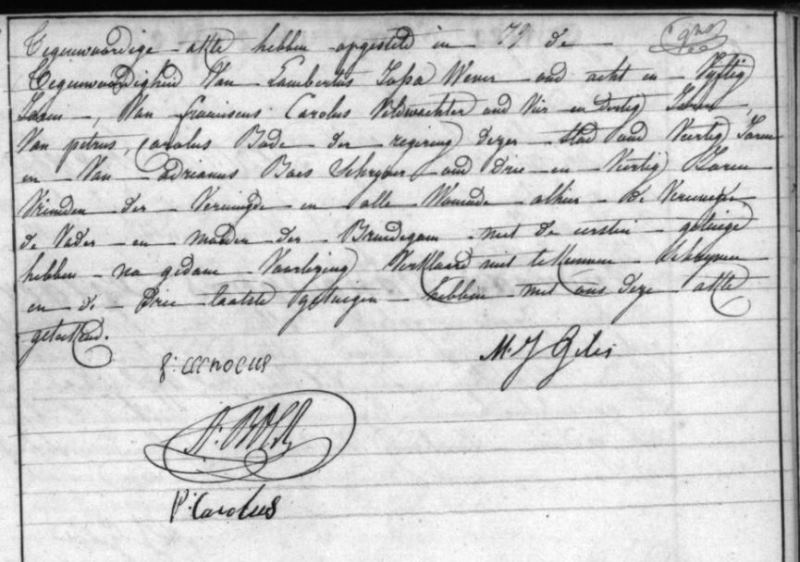 Tegenwoordige akte hebben opgesteld in de
Tegenwoordigheid Van Lambertus Wever oud acht en Vyftig
Jaren, Van franciscus Carolus Veldwachter oud Vier en dertig Jaren,
Van petrus, carolus Bode der regering dezer stad oud Veertig Jaren
en Van adrianus Baes Schryver oud drie en Veertig Jaren
Vrinden der Vereenigde en alle Woonende alhier de Vereenigde
de Vader en moeder der Bruidegom met de eersten getuige
hebben na gedane Voorlezing Verklaard niet te kunnen Schryven
en de drie laatste getuigen hebben met ons deze akte
geteekend.
M. J Gelis
P: Carolus